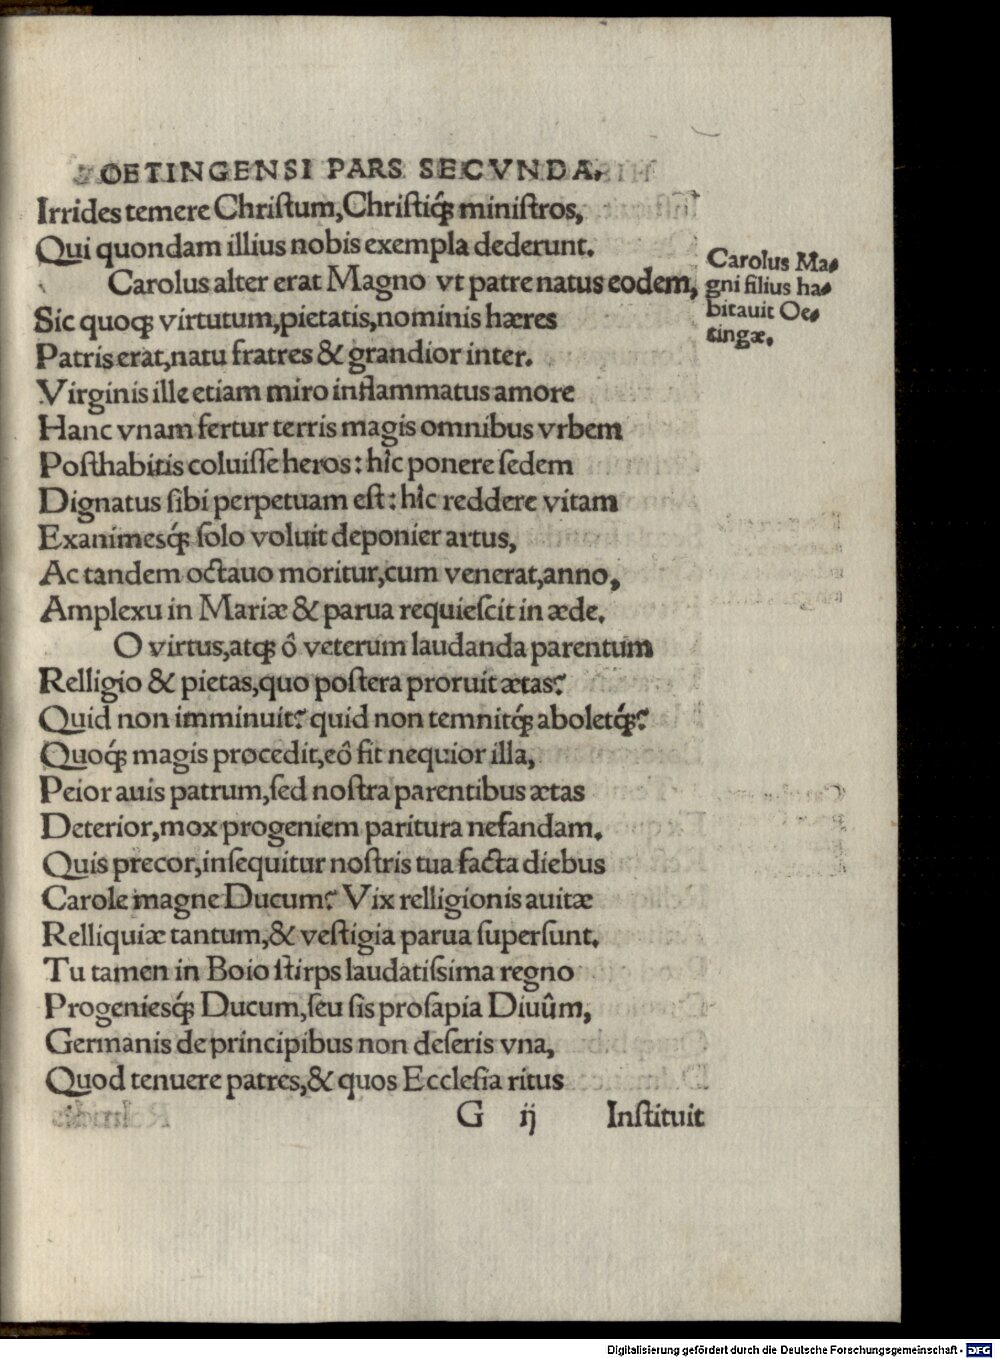 OETINGENSI PARS SECVNDA.
Irrides temere Chriſtum,Chriſtiq́ꝫ miniſtros,
Qui quondam illius nobis exempla dederunt.
Carolus alter erat Magno vt patre natus eodem,
Sic quoqꝫ virtutum,pietatis,nominis hæres
Patris erat,natu fratres & grandior inter.
Virginis ille etiam miro inflammatus amore
Hanc vnam fertur terris magis omnibus vrbem
Poſthabitis coluiſſe heros: hîc ponere ſedem
Dignatus ſibi perpetuam eſt: hîc reddere vitam
Exanimesq́ꝫ ſolo voluit deponier artus,
Ac tandem octauo moritur,cum venerat,anno,
Amplexu in Mariæ & parua requieſcit in æde.
O virtus,atqꝫ ô veterum laudanda parentum
Relligio & pietas,quo poſtera proruit ætas?
Quid non imminuit? quid non temnitq́ꝫ aboletq́ꝫ?
Quoq́ꝫ magis procedit,eô fit nequior illa,
Peior auis patrum,ſed noſtra parentibus ætas
Deterior,mox progeniem paritura nefandam.
Quis precor,inſequitur noſtris tua facta diebus
Carole magne Ducum? Vix relligionis auitæ
Relliquiæ tantum,& veſtigia parua ſuperſunt.
Tu tamen in Boio ſtirps laudatiſſima regno
Progeniesq́ꝫ Ducum,ſeu ſis proſapia Diuûm,
Germanis de principibus non deſeris vna,
Quod tenuere patres,& quos Eccleſia ritus
G ij Inſtituit
Carolus Ma⸗
gni filius ha⸗
bitauit Oe⸗
tingæ.
Digitalisierung gefördert durch die Deutsche Forschungsgemeinschaft - DFG